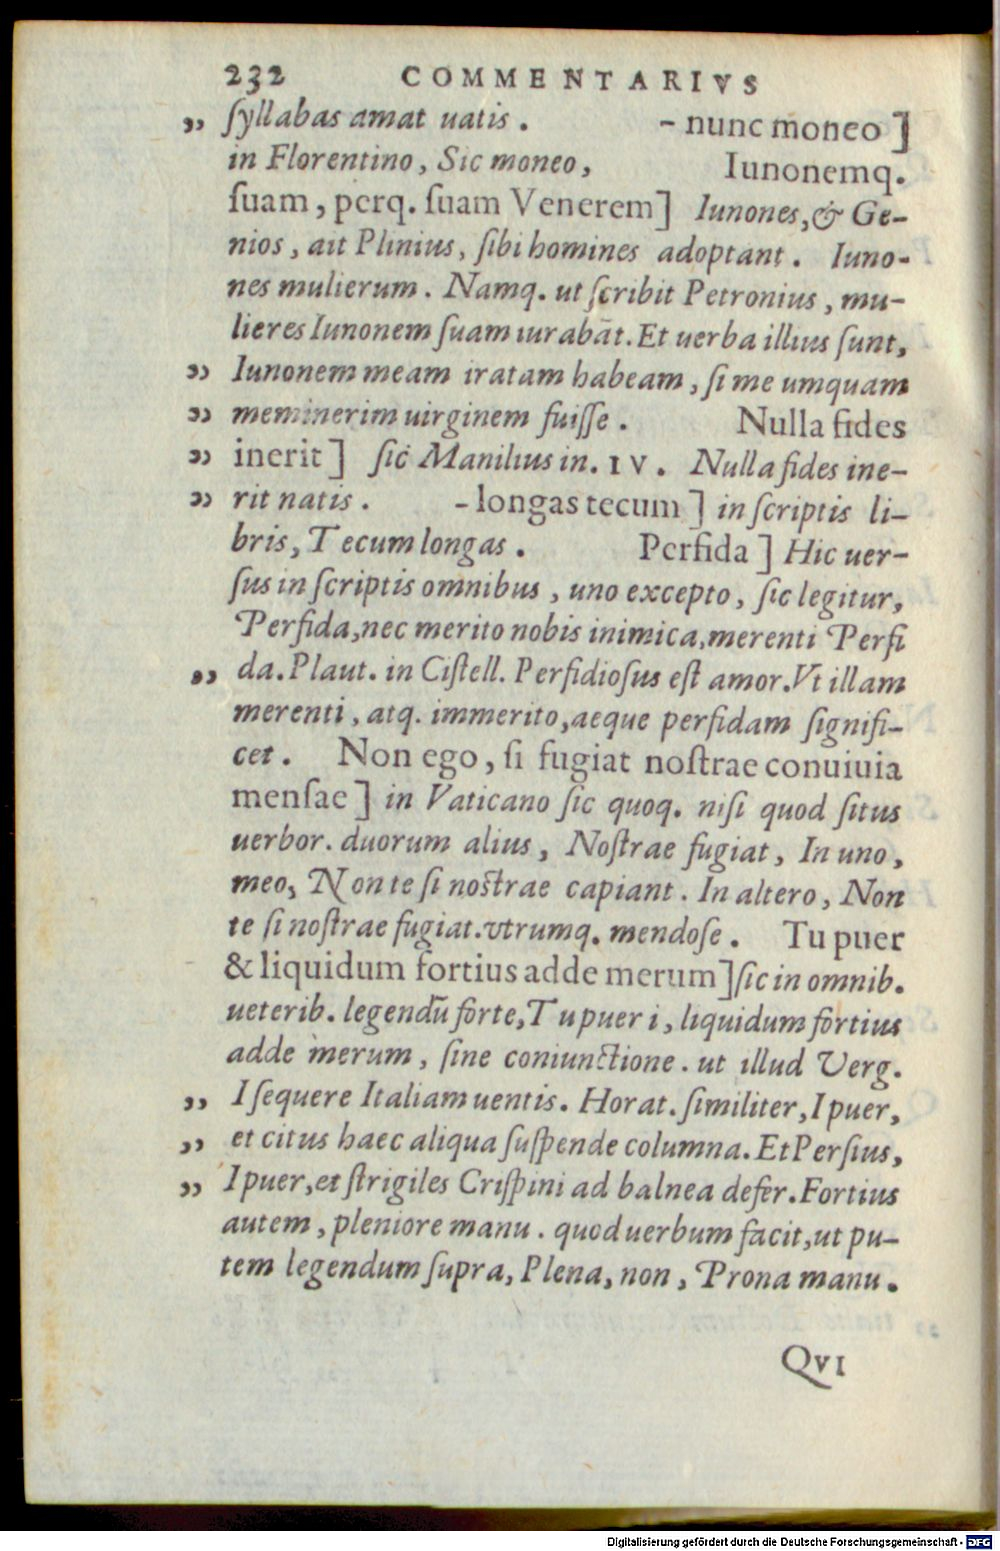 232 COMMENTARIVS
„ ſyllabas amat uatis. - nunc moneo ]
in Florentino, Sic moneo, Iunonemq.
ſuam, perq. ſuam Venerem] Iunones, & Ge-
nios, ait Plinius, ſibi homines adoptant. Iuno-
nes mulierum. Namq. ut ſcribit Petronius, mu-
lieres Iunonem ſuam iurabāt. Et uerba illius ſunt,
„ Iunonem meam iratam habeam, ſi me umquam
„ meminerim uirginem fuiſſe. Nulla fides
„ inerit ] ſic Manilius in. IV. Nulla fides ine-
„ rit natis. - longas tecum ] in ſcriptis li-
bris, Tecum longas. Perfida ] Hic uer-
ſus in ſcriptis omnibus, uno excepto, ſic legitur,
Perfida, nec merito nobis inimica, merenti Perfi
„ da. Plaut. in Ciſtell. Perfidioſus eſt amor. Vt illam
merenti, atq. immerito, aeque perfidam ſignifi-
cet. Non ego, ſi fugiat noſtrae conuiuia
menſae ] in Vaticano ſic quoq. niſi quod ſitus
uerbor. duorum alius, Noſtrae fugiat, In uno,
meo, Non te ſi noſtrae capiant. In altero, Non
te ſi noſtrae fugiat. vtrumq. mendoſe. Tu puer
& liquidum fortius adde merum] ſic in omnib.
ueterib. legendū forte, Tu puer i, liquidum fortius
adde merum, ſine coniunctione. ut illud Verg.
„ I ſequere Italiam uentis. Horat. ſimiliter, I puer,
„ et citus haec aliqua ſuſpende columna. Et Perſius,
„ I puer, et ſtrigiles Criſpini ad balnea defer. Fortius
autem, pleniore manu. quod uerbum facit, ut pu-
tem legendum ſupra, Plena, non, Prona manu.
QVI
Digitalisierung gefördert durch die Deutsche Forschungsgemeinschaft - DFG